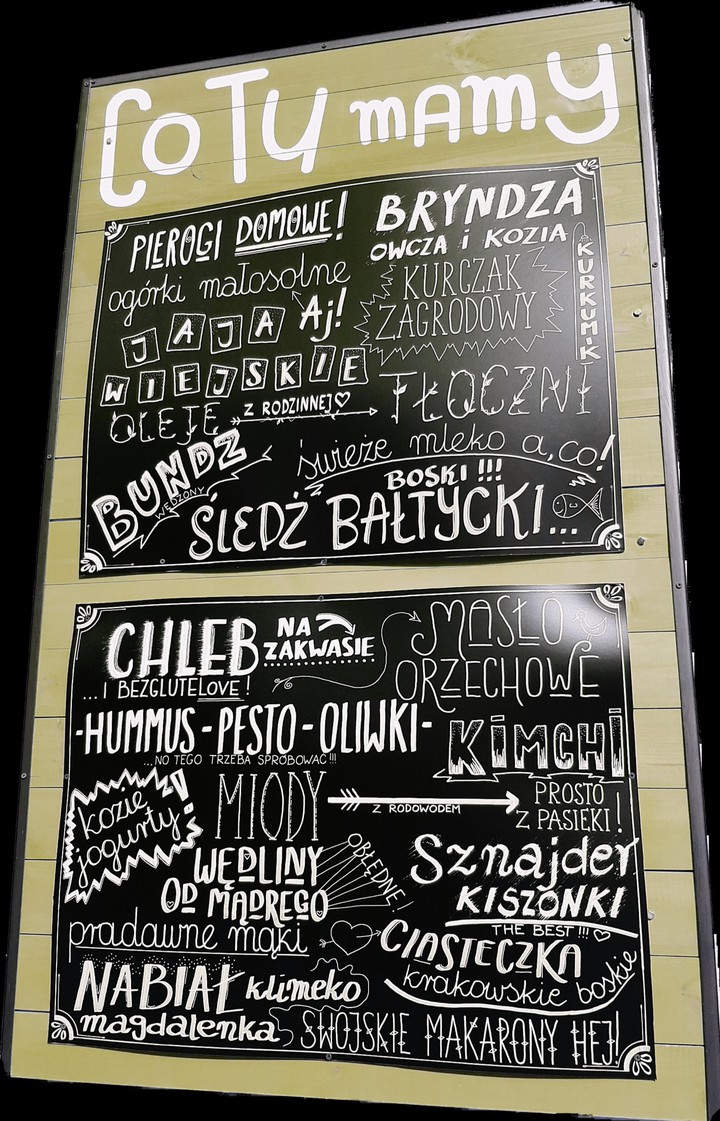 Co Tu mamy
PIEROGI DOMOWE!
BRYNDZA
OWCZA i KOZIA
ogórki małosolne
Aj!
KURCZAK
ZAGRODOWY
KURKUMiK
JAJA
WIEJSKIE
OLEJE
Z RODZINNEJ♡
TŁOCZNI
BUNDZ
WĘDZONY
świeże mleko a, co!
BOSKI!!!
ŚLEDŹ BAŁTYCKI...
CHLEB NA ZAKWASIE
...I BEZGLUTELOVE!
MASŁO
ORZECHOWE
-HUMMUS-PESTO-OLIWKI-
...NO TEGO TRZEBA SPRÓBOWAĆ!!!
KiMCHi
kozie
jogurty!
MIODY
Z RODOWODEM
PROSTO
Z PASIEKI!
WĘDLINY
OD MĄDREGO
OBŁĘDNE
Sznajder
KISZONKI
THE BEST!!! ♡
pradawne mąki
CIASTECZKA
krakowskie boskie
NABIAŁ klimeko
magdalenka
SWOJSKIE MAKARONY HEJ!